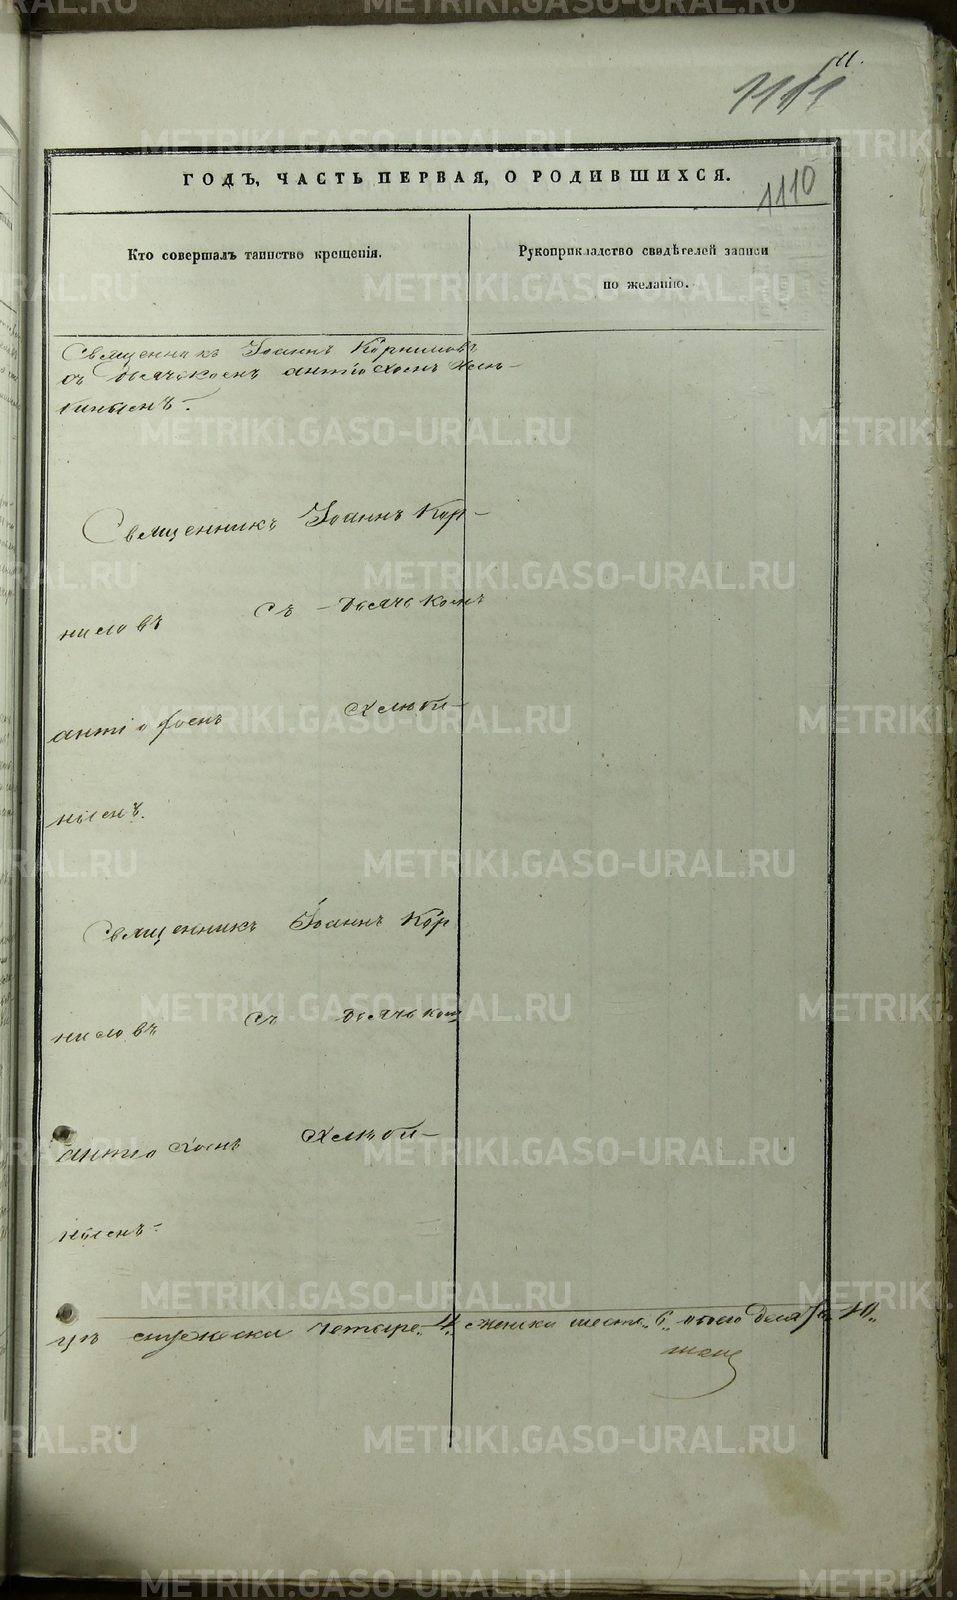 11.
1111
ГОДЪ, ЧАСТЬ ПЕРВАЯ, О РОДИВШИХСЯ.
1110
Кто совершалъ таинство крещенія.
Рукоприкладство свидѣтелей записи
по желанію.
Священникъ Іоаннъ Корниловъ
съ дьячькомъ Антіохомъ Хелю-
бинымъ.
Священникъ Іоаннъ Кор-
ниловъ съ дьячькомъ
Антіохомъ Хелюби-
нымъ.
Священникъ Іоаннъ Кор
ниловъ съ дьячькомъ
Антіохомъ Хелюби-
нымъ.
мужеска четыре 4. женска шесть 6. обоего пола 10.
METRIKI.GASO-URAL.RU